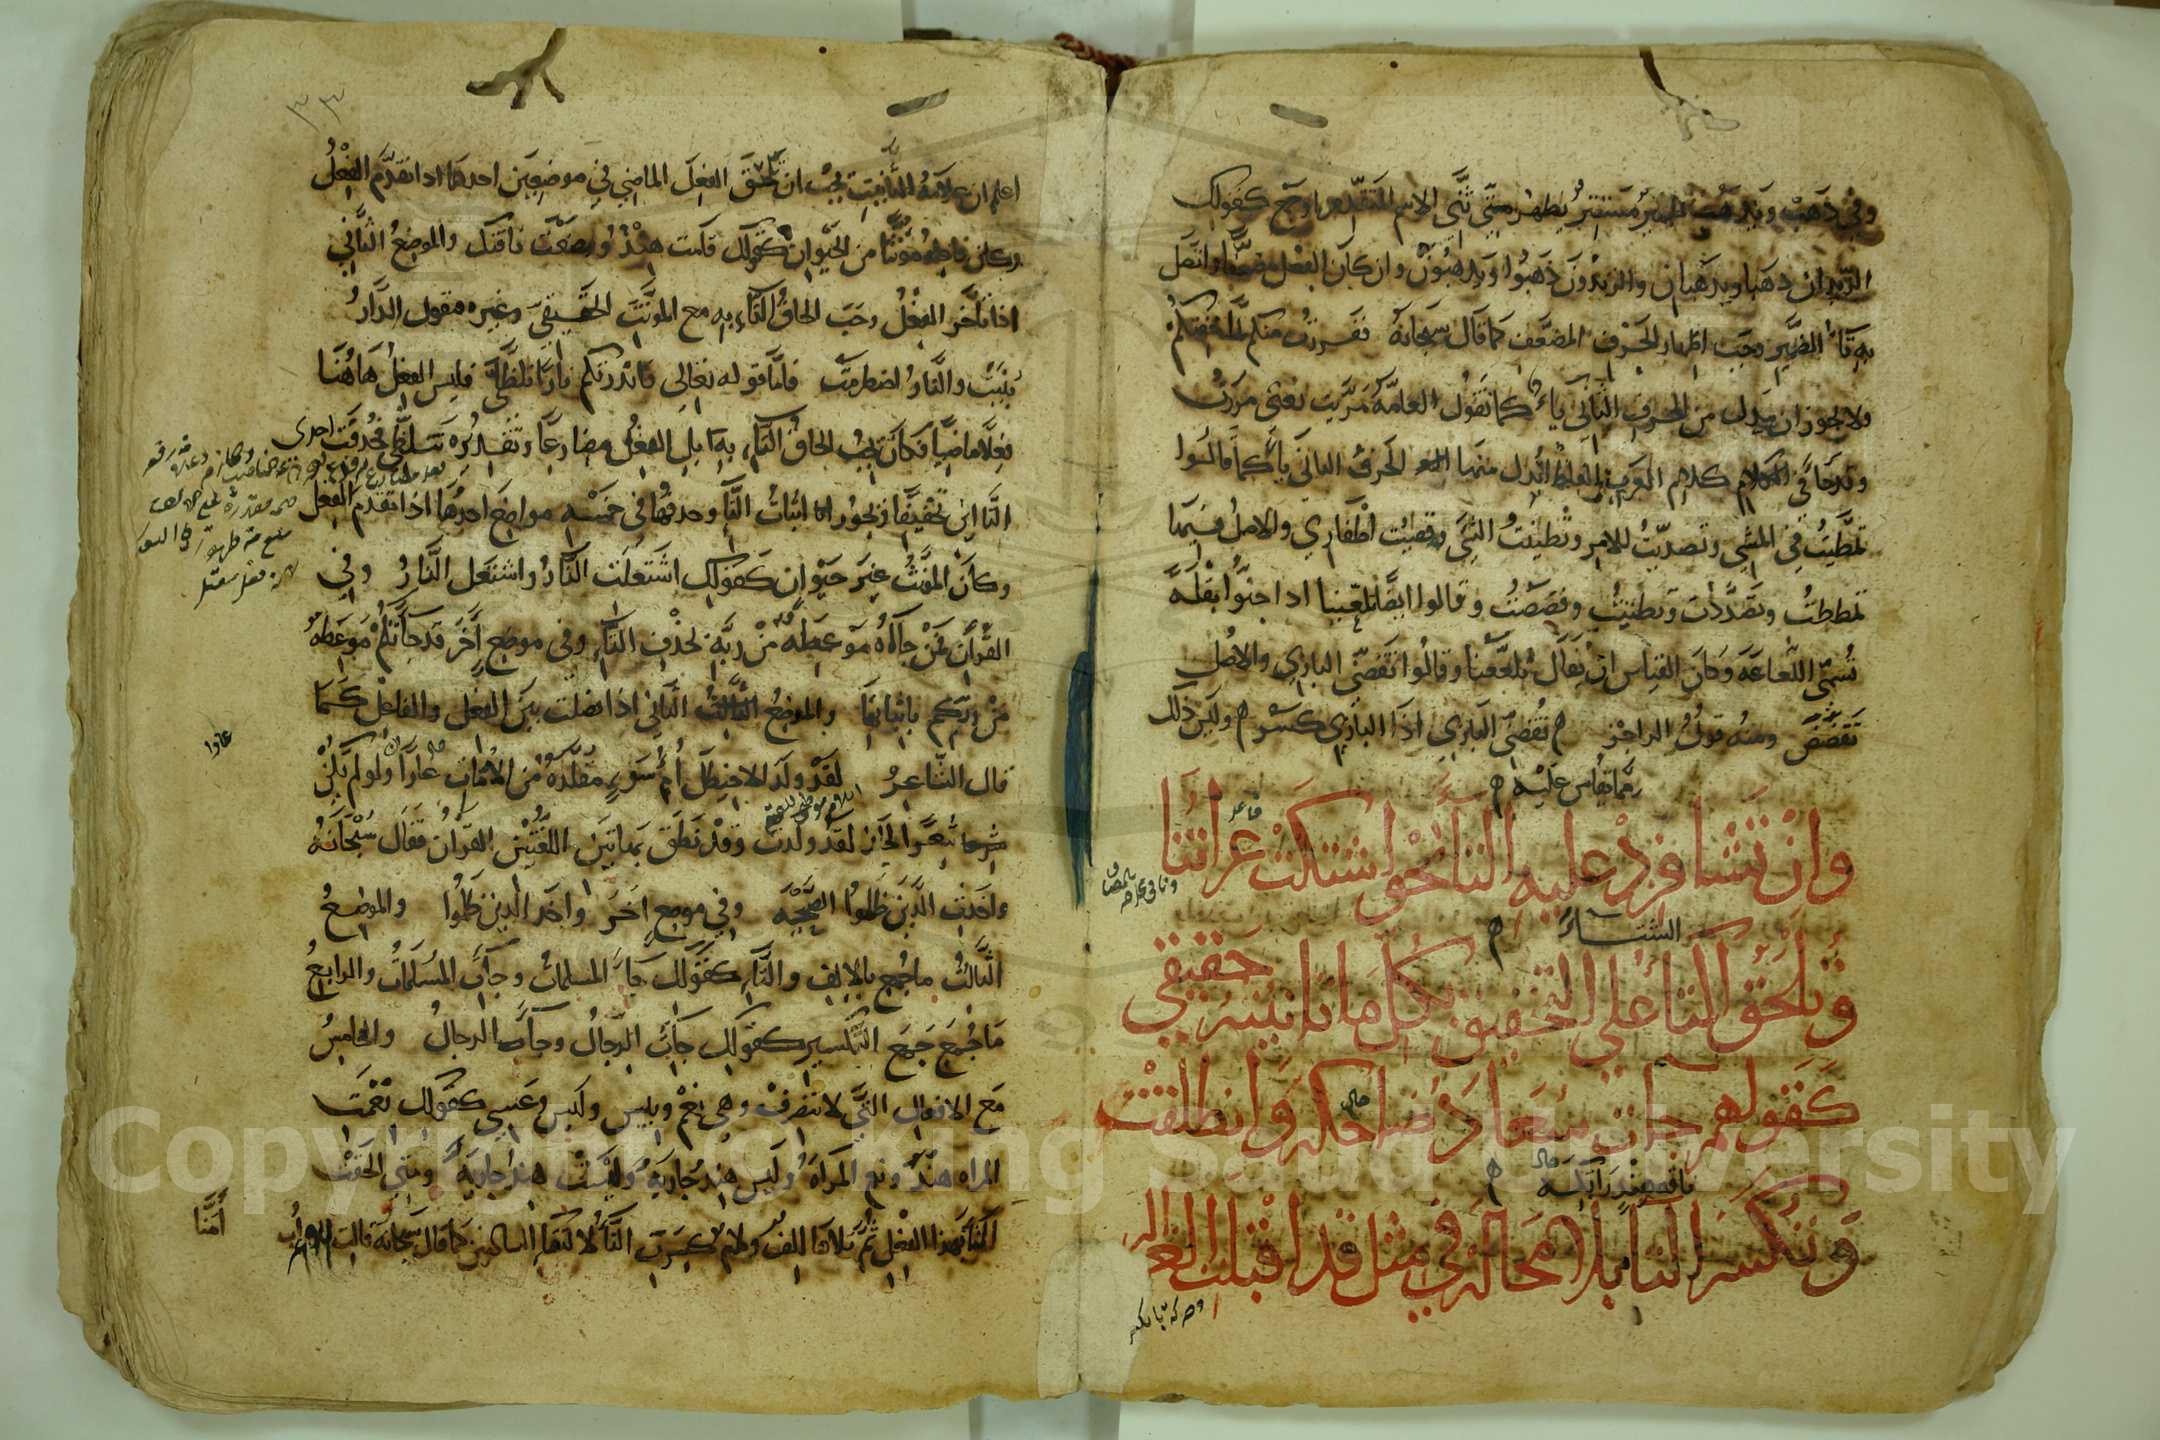 وفي ذهب ويذهب ضمير مستتر يظهر متى ثني الاسم المتقدم او جمع كقولك
الزيدان ذهبا ويذهبان والزيدون ذهبوا ويذهبون وان كان الفعل مضعفا واتصل
به تاء الضمير وجب اظهار الحرف المضعف كما قال سبحانه ففررت منكم لما خفتكم
ولا يجوز ان يبدل من الحرف الثاني ياء كما تقول العامة مريت بمعنى مررت
وقد جاء في كلام العرب الفاظ ابدل منها الحرف الثاني ياء كما قالوا
تمطيت في المشي وتصديت للامر وتظنيت الشي وقصيت اظفاري والاصل فيها
تمططت وتصددت وتظننت وقصصت وقالوا ايضا تلعينا اذا اجنوا بقلة
تسمى اللعاعة وكان القياس ان يقال تلععنا وقالوا تقضى البازي والاصل
تقضض ومنه قول الراجز تقضي البازي اذا البازي كسر وليس ذلك
مما يقاس عليه
وان تشا فزد عليه التا نحو اشتكت غزاتنا
الشتاء
وتلحق التا على التحقيق بكل ما تانيثه حقيقي
كقولهم جات سعاد ضاحكه وانطلقت
ناقة هند راتكه
وتكسر التا بلا محاله في مثل قد اقبلت الغزاله
اعلم ان علامة التأنيث يجب ان تلحق الفعل الماضي في موضعين احدهما اذا تقدم الفعل
وكان فاعله مؤنثا من الحيوان كقولك قامت هند وبضعت ناقتك والموضع الثاني
اذا تأخر الفعل وجب الحاق التاء به مع المونث الحقيقي وغيره فتقول الدار
بنيت والنار اضطرمت فاما قوله تعالى فانذرتكم نارا تلظى فليس الفعل هاهنا
فعلا ماضيا فكان يجب الحاق التاء به بل الفعل مضارعا وتقديره تتلظى فحذفت احدى
التاءين تخفيفا ويجوز اثبات التاء وحذفها في خمسة مواضع احدها اذا تقدم الفعل
وكان المونث غير حيوان كقولك اشتعلت النار واشتعل النار وفي
القرآن فمن جاءه موعظة من ربه بحذف التاء وفي موضع آخر قد جاءتكم موعظة
من ربكم باثباتها والموضع الثاني اذا فصلت بين الفعل والفاعل كما
قال الشاعر لقد ولد الاخيطل أم سوء مقلدة من الأمات عارا ولو لم يكن
شعرا لجاز لقد ولدت وقد نطق بهاتين اللغتين القرآن فقال سبحانه
واخذت الذين ظلموا الصيحة وفي موضع آخر واخذ الذين ظلموا والموضع
الثالث ما جمع بالالف والتاء كقولك جاء المسلمات وجاءت المسلمات والرابع
ما جمع جمع التكسير كقولك جاء الرجال وجاءت الرجال والخامس
مع الافعال التي لا تتصرف وهي نعم وبيس وليس وعسى كقولك نعمت
المراه هند ونعم المرأة وليس هند جارية وليست هند جارية ومتى الحقت
التاء بهذا الفعل ثم تلاها الف ولام كسرت التاء لالتقاء الساكنين كما قال سبحانه قالت الاعراب
آمنا